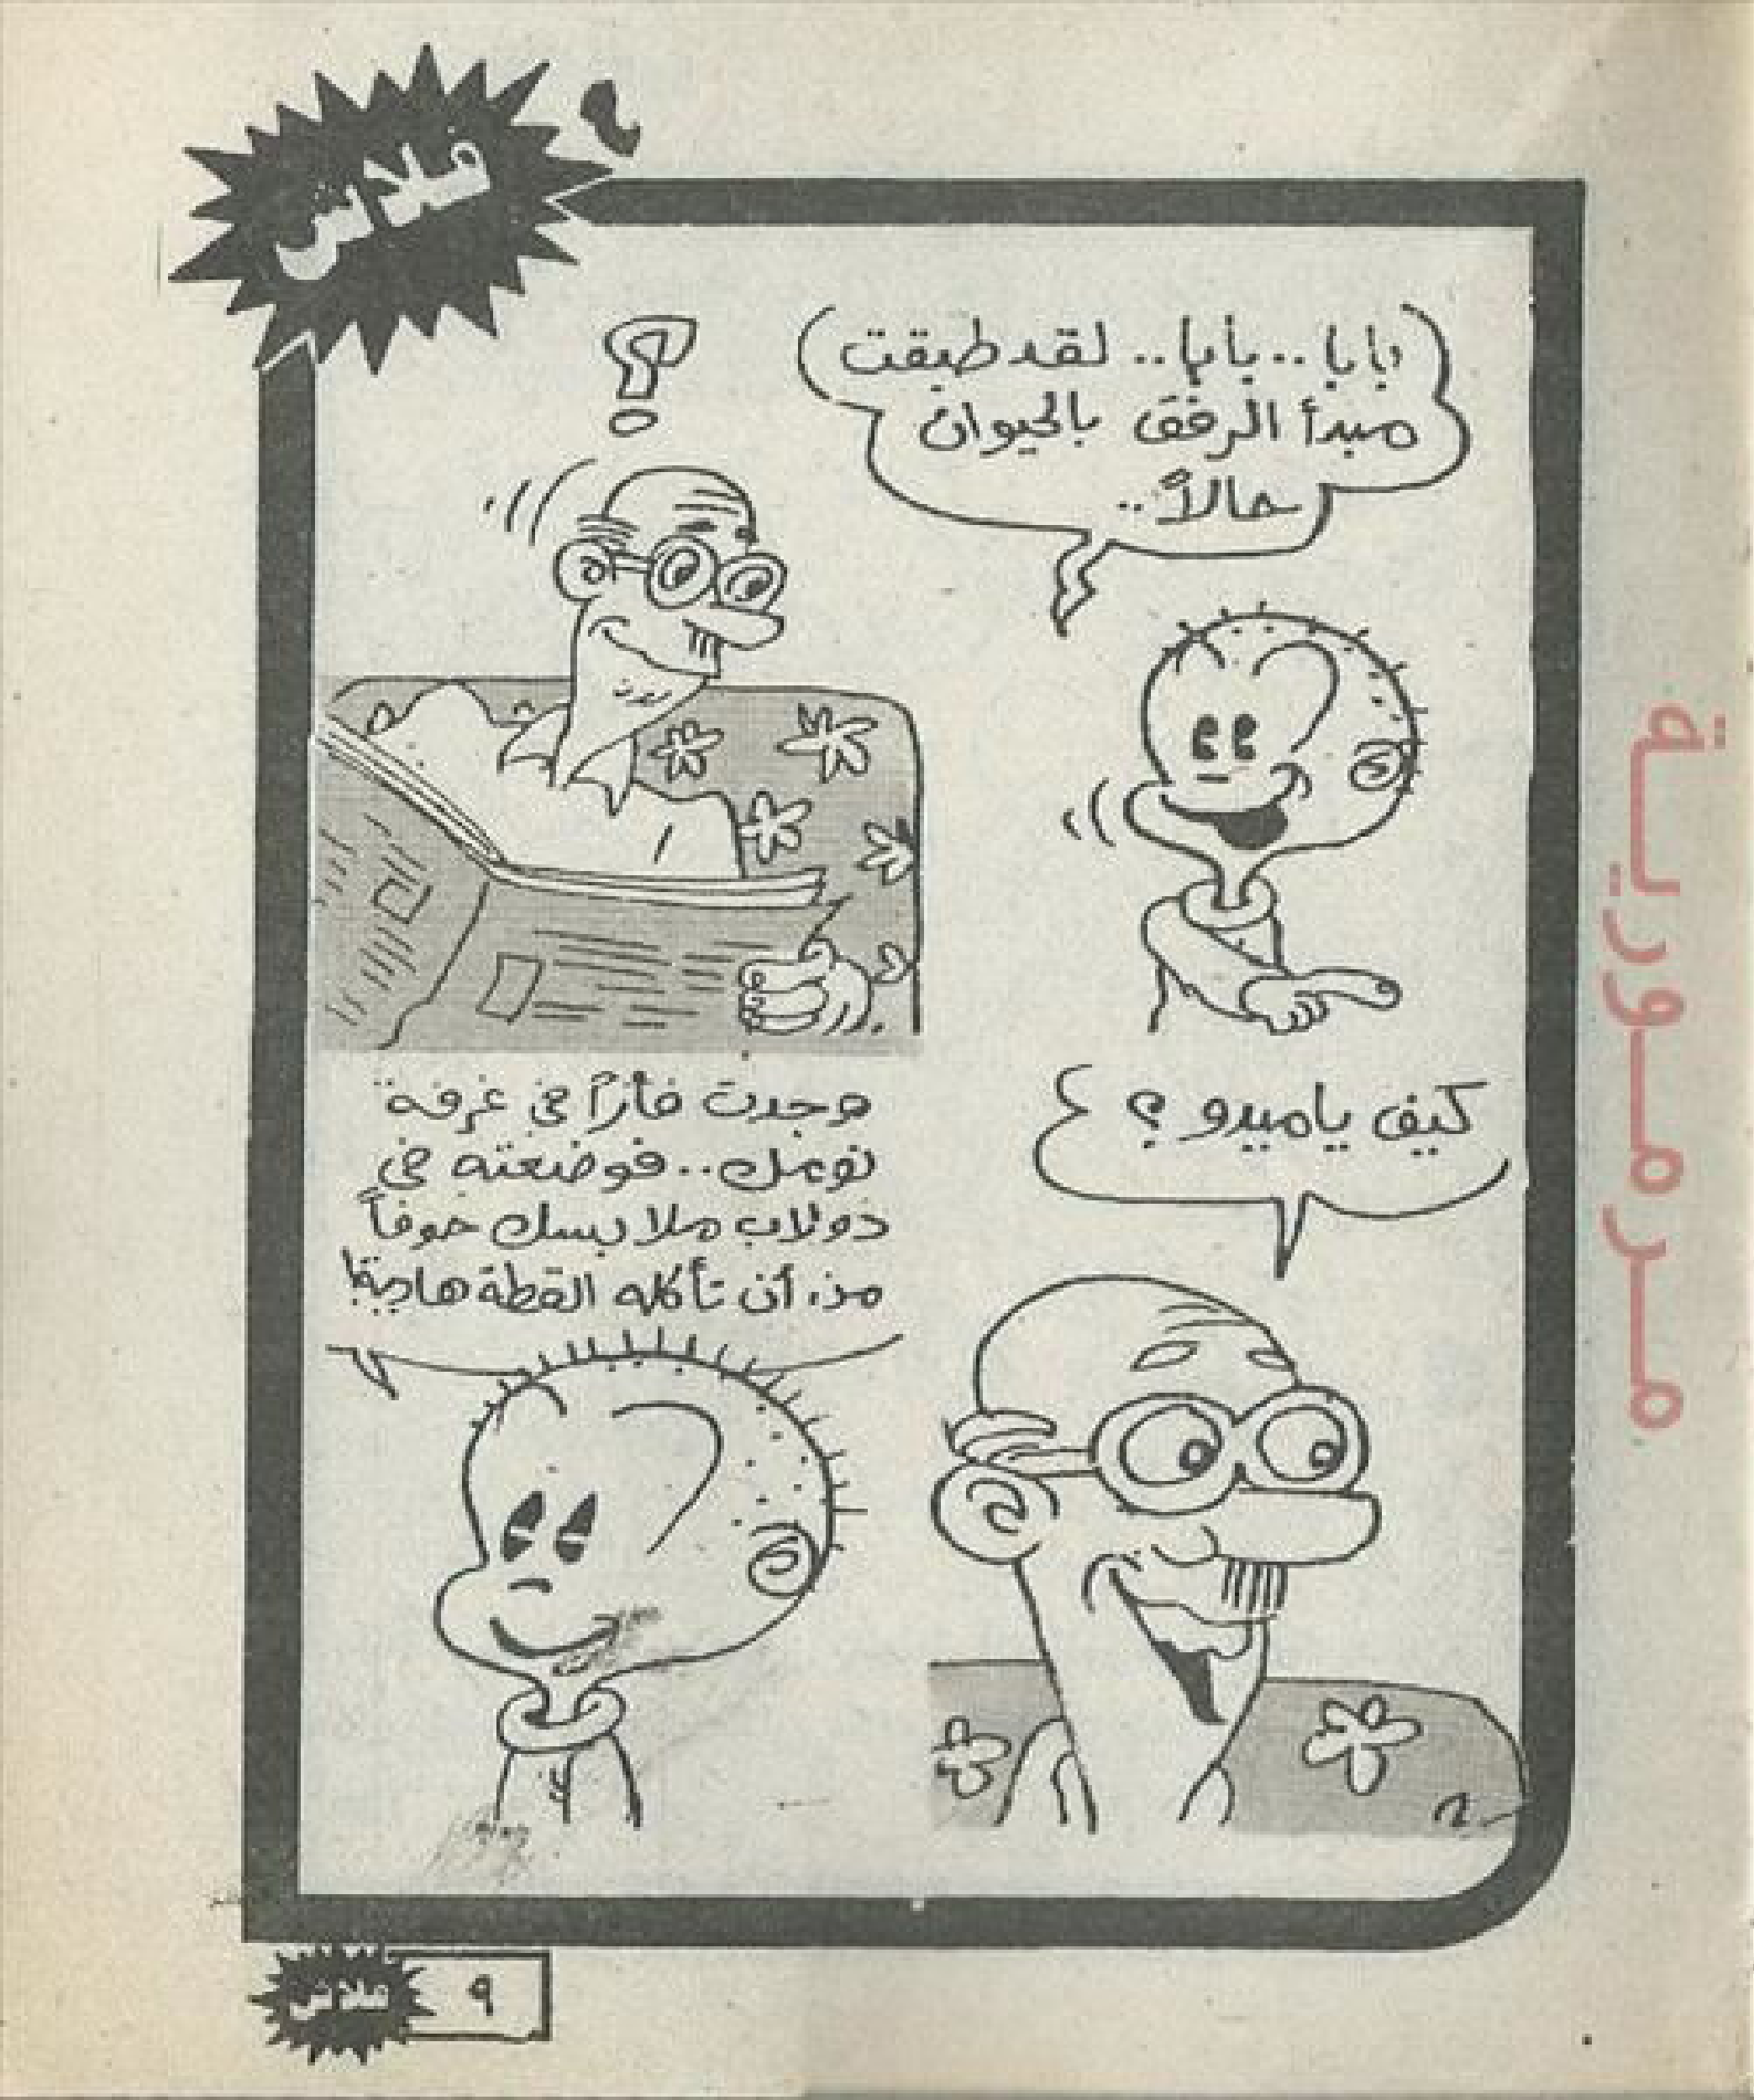 فلاش
بابا.. بابا.. لقد طبقت
مبدأ الرفق بالحيوان
حالاً..
؟
كيف يا ميدو؟
وجدت فأراً في غرفة
نومك.. فوضعته في
دولاب ملابسك خوفاً
من أن تأكله القطة
مرمورية
فلاش
٩